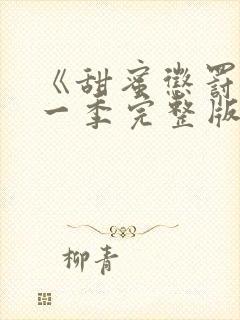 《甜蜜懲罰
一季完整版
柳青